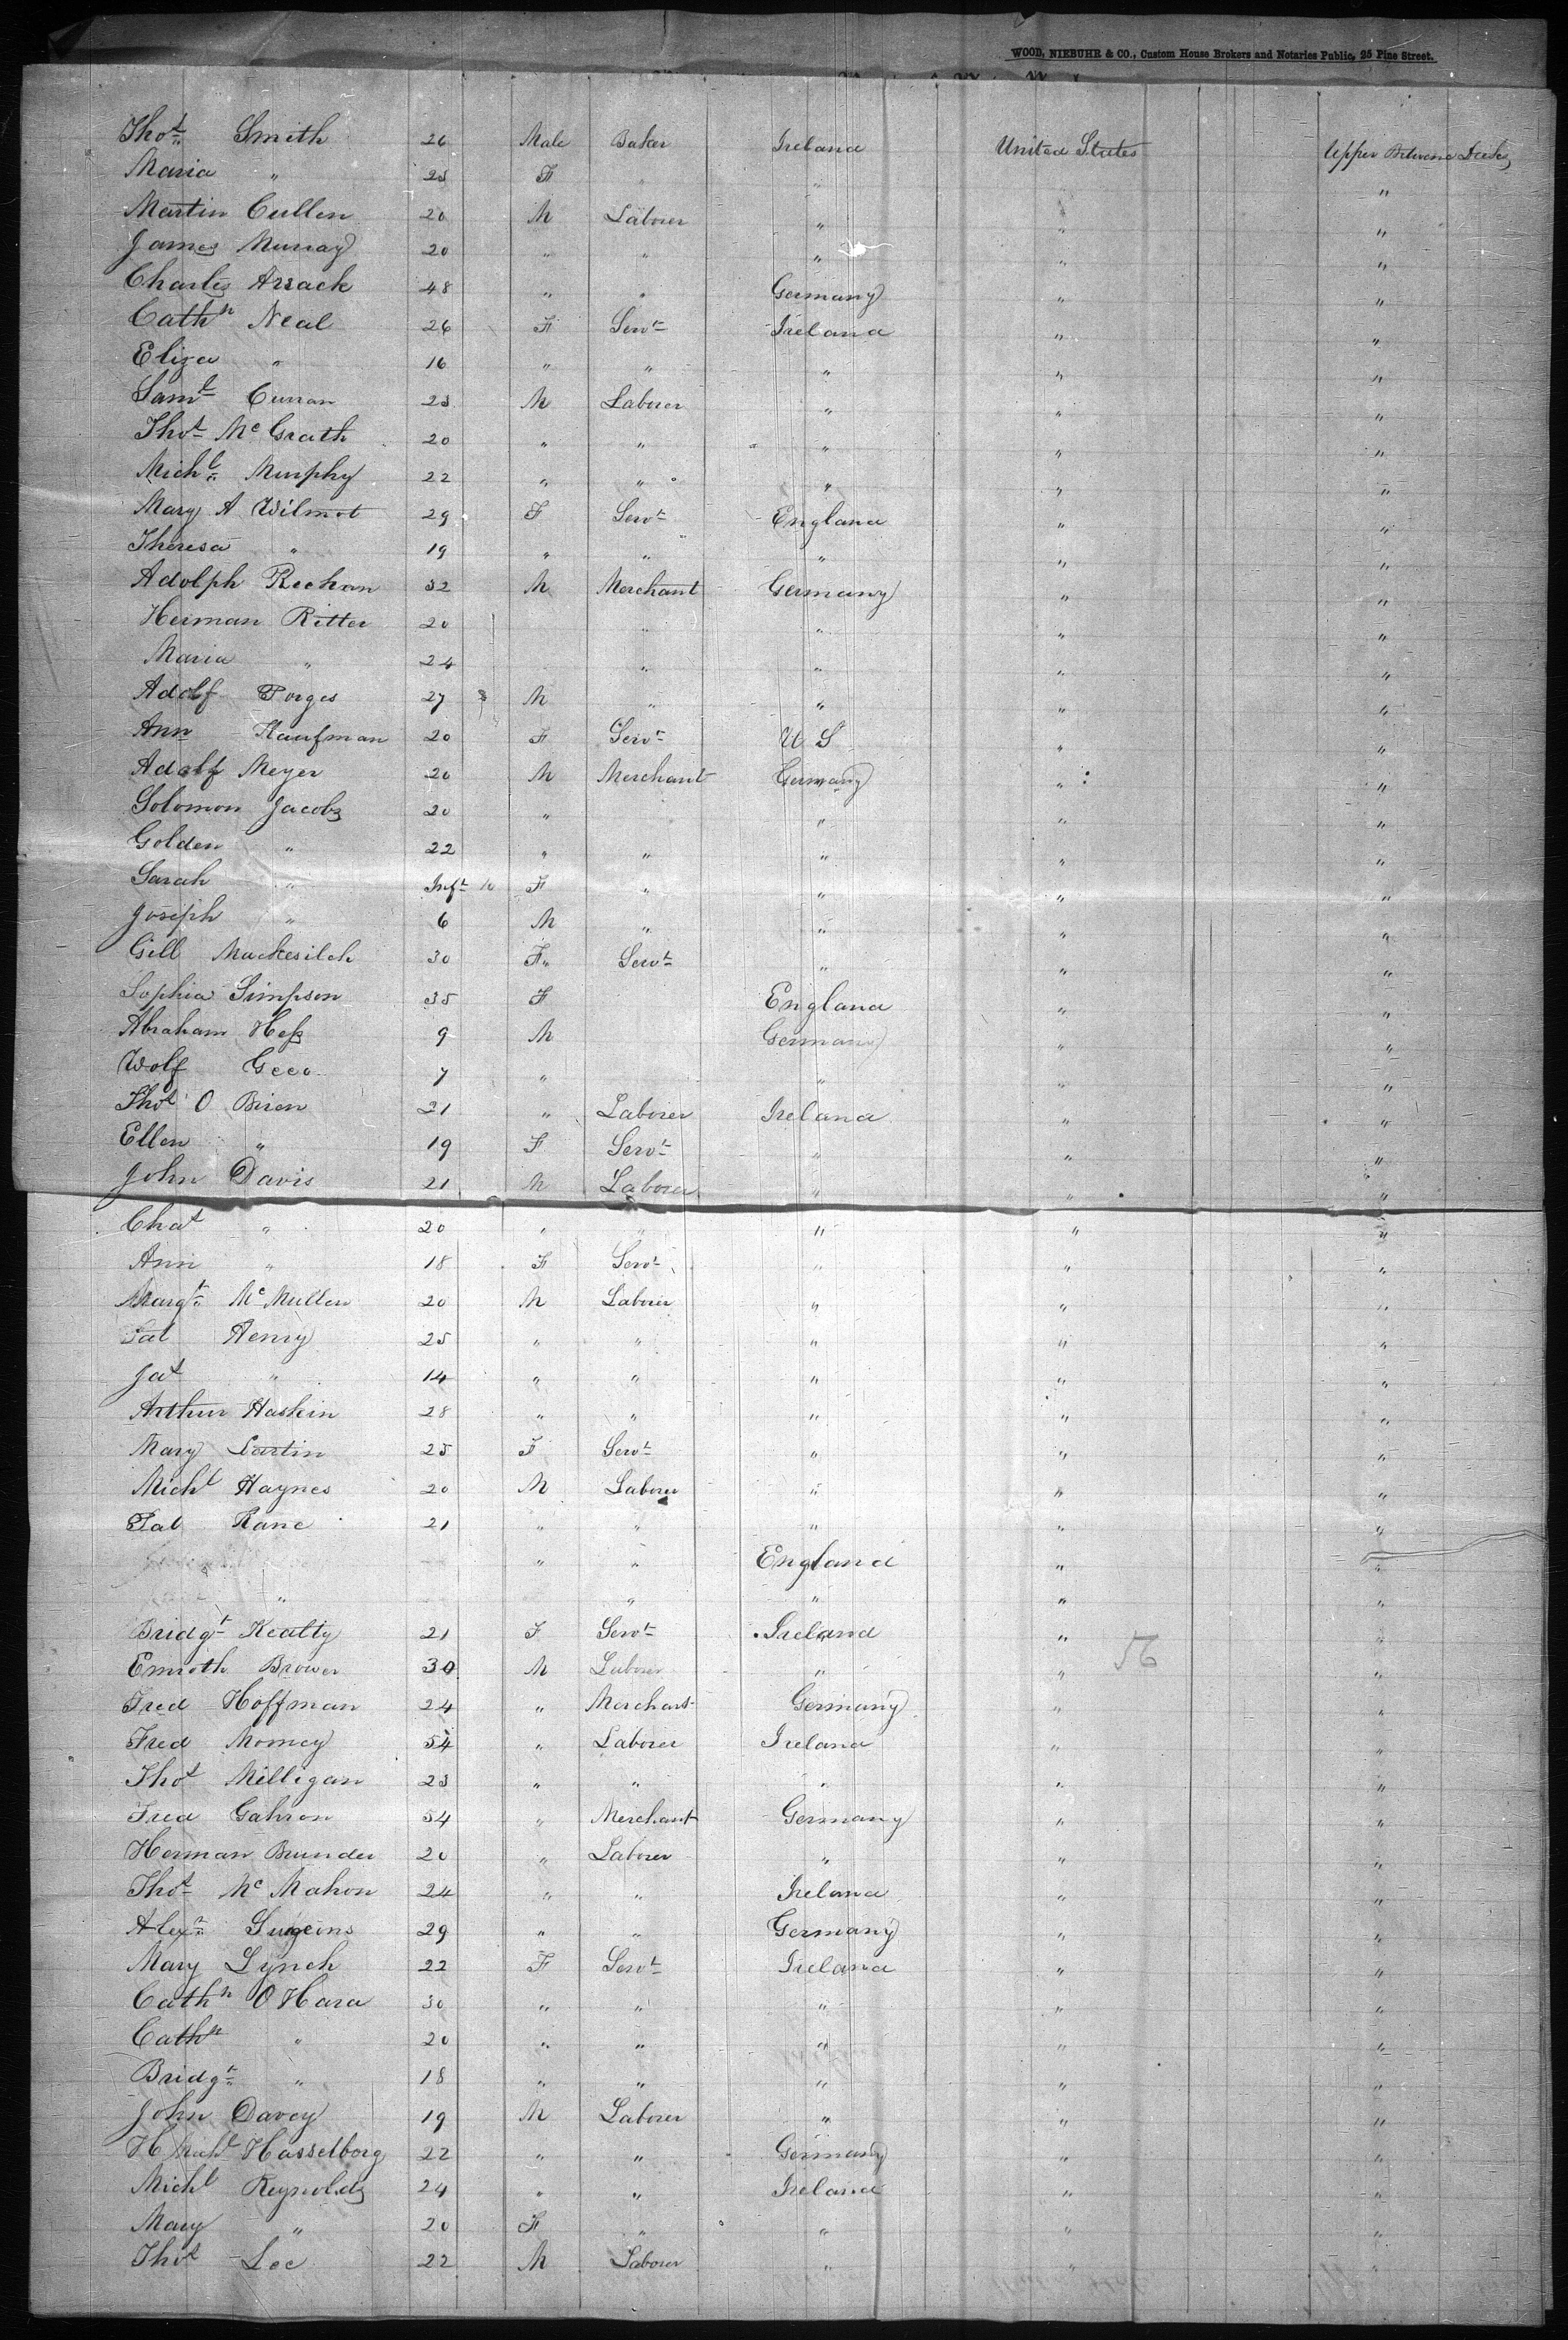 WOOD, NIEBUHR & CO., Custom House Brokers and Notaries Public, 25 Pine Street.
Thos Smith 26 Male Baker Ireland United States Upper Between Decks
Maria " 25 F " " " "
Martin Cullen 20 M Laborer " " "
James Murray 20 " " " " "
Charles Arrack 48 " " Germany " "
Cathn Neal 26 F Servt Ireland " "
Eliza " 16 " " " " "
Saml Curran 23 M Laborer " " "
Thos McGrath 20 " " " " "
Michl Murphy 22 " " " " "
Mary A Wilmot 29 F Servt England " "
Theresa " 19 " " " " "
Adolph Rechan 32 M Merchant Germany " "
Herman Ritter 20 " " " "
Maria " 24 " " " "
Adolf Porges 27 M " " " "
Ann Kaufman 20 F Servt U S " "
Adolf Meyer 20 M Merchant Germany " "
Solomon Jacobs 20 " " " "
Golden " 22 " " " " "
Sarah " Inft F " " " "
Joseph " 6 M " " " "
Gill Mackesilch 30 F " Servt " " "
Sophia Simpson 35 F England " "
Abraham Hess 9 M Germany " "
Wolf 7 " " " "
Thos O Biren 21 " Laborer Ireland " "
Ellen " 19 F Servt " " "
John Davis 21 M Laborer " " "
Chas " 20 " " " " "
Ann " 18 F Servt " " "
Margt McMullen 20 M Laborer " " "
Pat Henry 25 " " " " "
Jas " 14 " " " " "
Arthur Haskin 28 " " " " "
Mary Lartin 25 F Servt " " "
Michl Haynes 20 M Laborer " " "
Pat Kane 21 " " " " "
" " England " "
" " " " "
Bridgt Keatty 21 F Servt Ireland " "
Emroth Brower 30 M Laborer " " "
56
Fred Hoffman 24 " Merchant Germany " "
Fred Momey 54 " Laborer Ireland " "
Thos Milligan 23 " " " " "
Fred Gahron 54 " Merchant Germany " "
Herman Brunder 20 " Laborer " " "
Thos McMahon 24 " " Ireland " "
Alexr 29 " " Germany " "
Mary Lynch 22 F Servt Ireland " "
Cathn O Hara 30 " " " " "
Cathn " 20 " " " " "
Bridgt " 18 " " " " "
John Davey 19 M Laborer " " "
H Hasselborg 22 " " Germany " "
Michl Reynolds 24 " " Ireland " "
Mary " 20 F " " " "
Thos Lee 22 M Laborer " " "